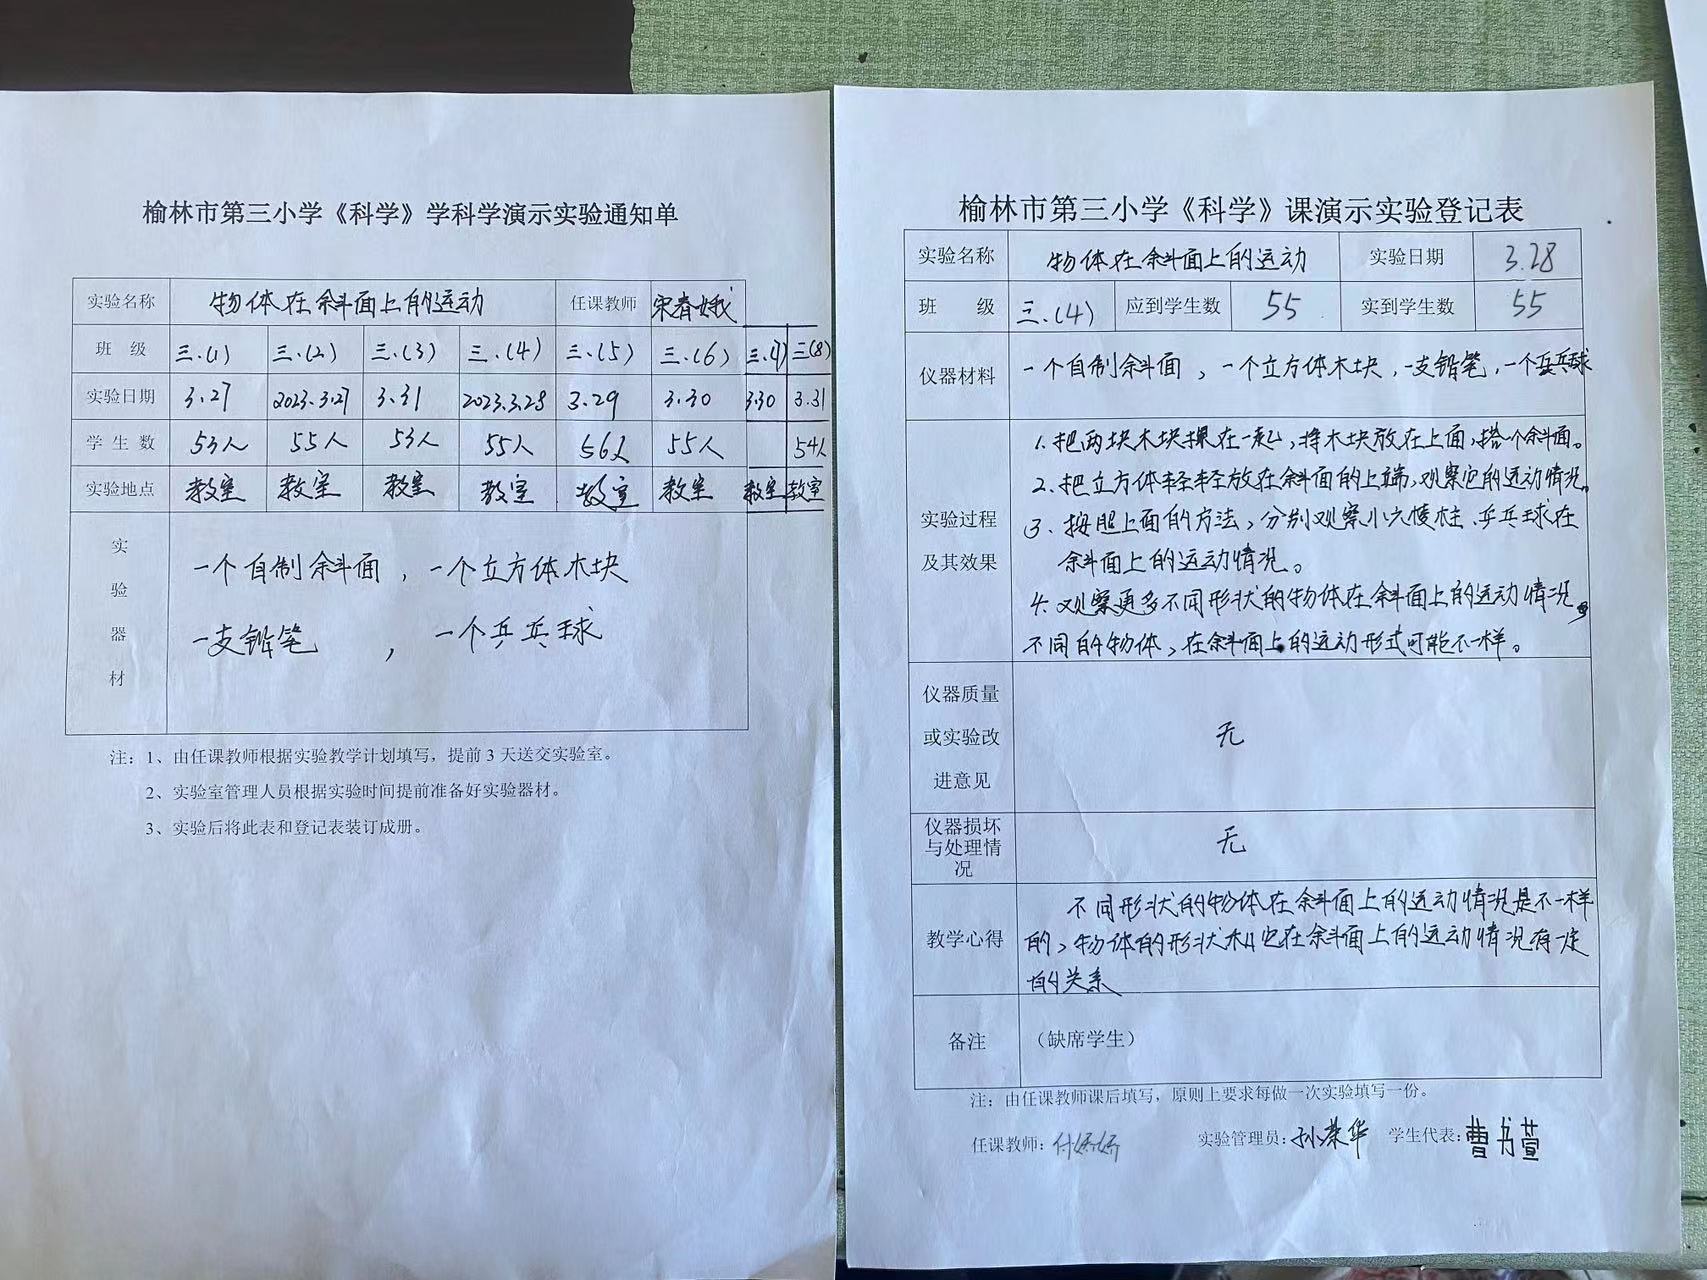 榆林市第三小学《科学》学科学演示实验通知单
实验名称 物体在斜面上的运动 任课教师 宋春娥
班 级 三.(1) 三.(2) 三.(3) 三.(4) 三.(5) 三.(6) 三.(7) 三(8)
实验日期 3.27 2023.3.27 3.31 2023.3.28 3.29 3.30 3.30 3.31
学 生 数 53人 55人 53人 55人 56人 55人 54人
实验地点 教室 教室 教室 教室 教室 教室 教室 教室
实验器材
一个自制斜面，一个立方体木块
一支铅笔，一个乒乓球
注：1、由任课教师根据实验教学计划填写，提前 3 天送交实验室。
2、实验室管理人员根据实验时间提前准备好实验器材。
3、实验后将此表和登记表装订成册。
榆林市第三小学《科学》课演示实验登记表
实验名称 物体在斜面上的运动 实验日期 3.28
班 级 三.(4) 应到学生数 55 实到学生数 55
仪器材料 一个自制斜面，一个立方体木块，一支铅笔，一个乒乓球
实验过程
及其效果
1. 把两块木块摞在一起，将木块放在上面，搭个斜面。
2. 把立方体轻轻放在斜面的上端，观察它的运动情况。
3、按照上面的方法，分别观察小六棱柱、乒乓球在
斜面上的运动情况。
4. 观察更多不同形状的物体在斜面上的运动情况。
不同的物体，在斜面上的运动形式可能不一样。
仪器质量
或实验改
进意见
无
仪器损坏
与处理情
况
无
教学心得
不同形状的物体在斜面上的运动情况是不一样
的，物体的形状和它在斜面上的运动情况有一定
的关系
备注 （缺席学生）
注：由任课教师课后填写，原则上要求每做一次实验填写一份。
任课教师：付娇娇 实验管理员：孙荣华 学生代表：曹书萱